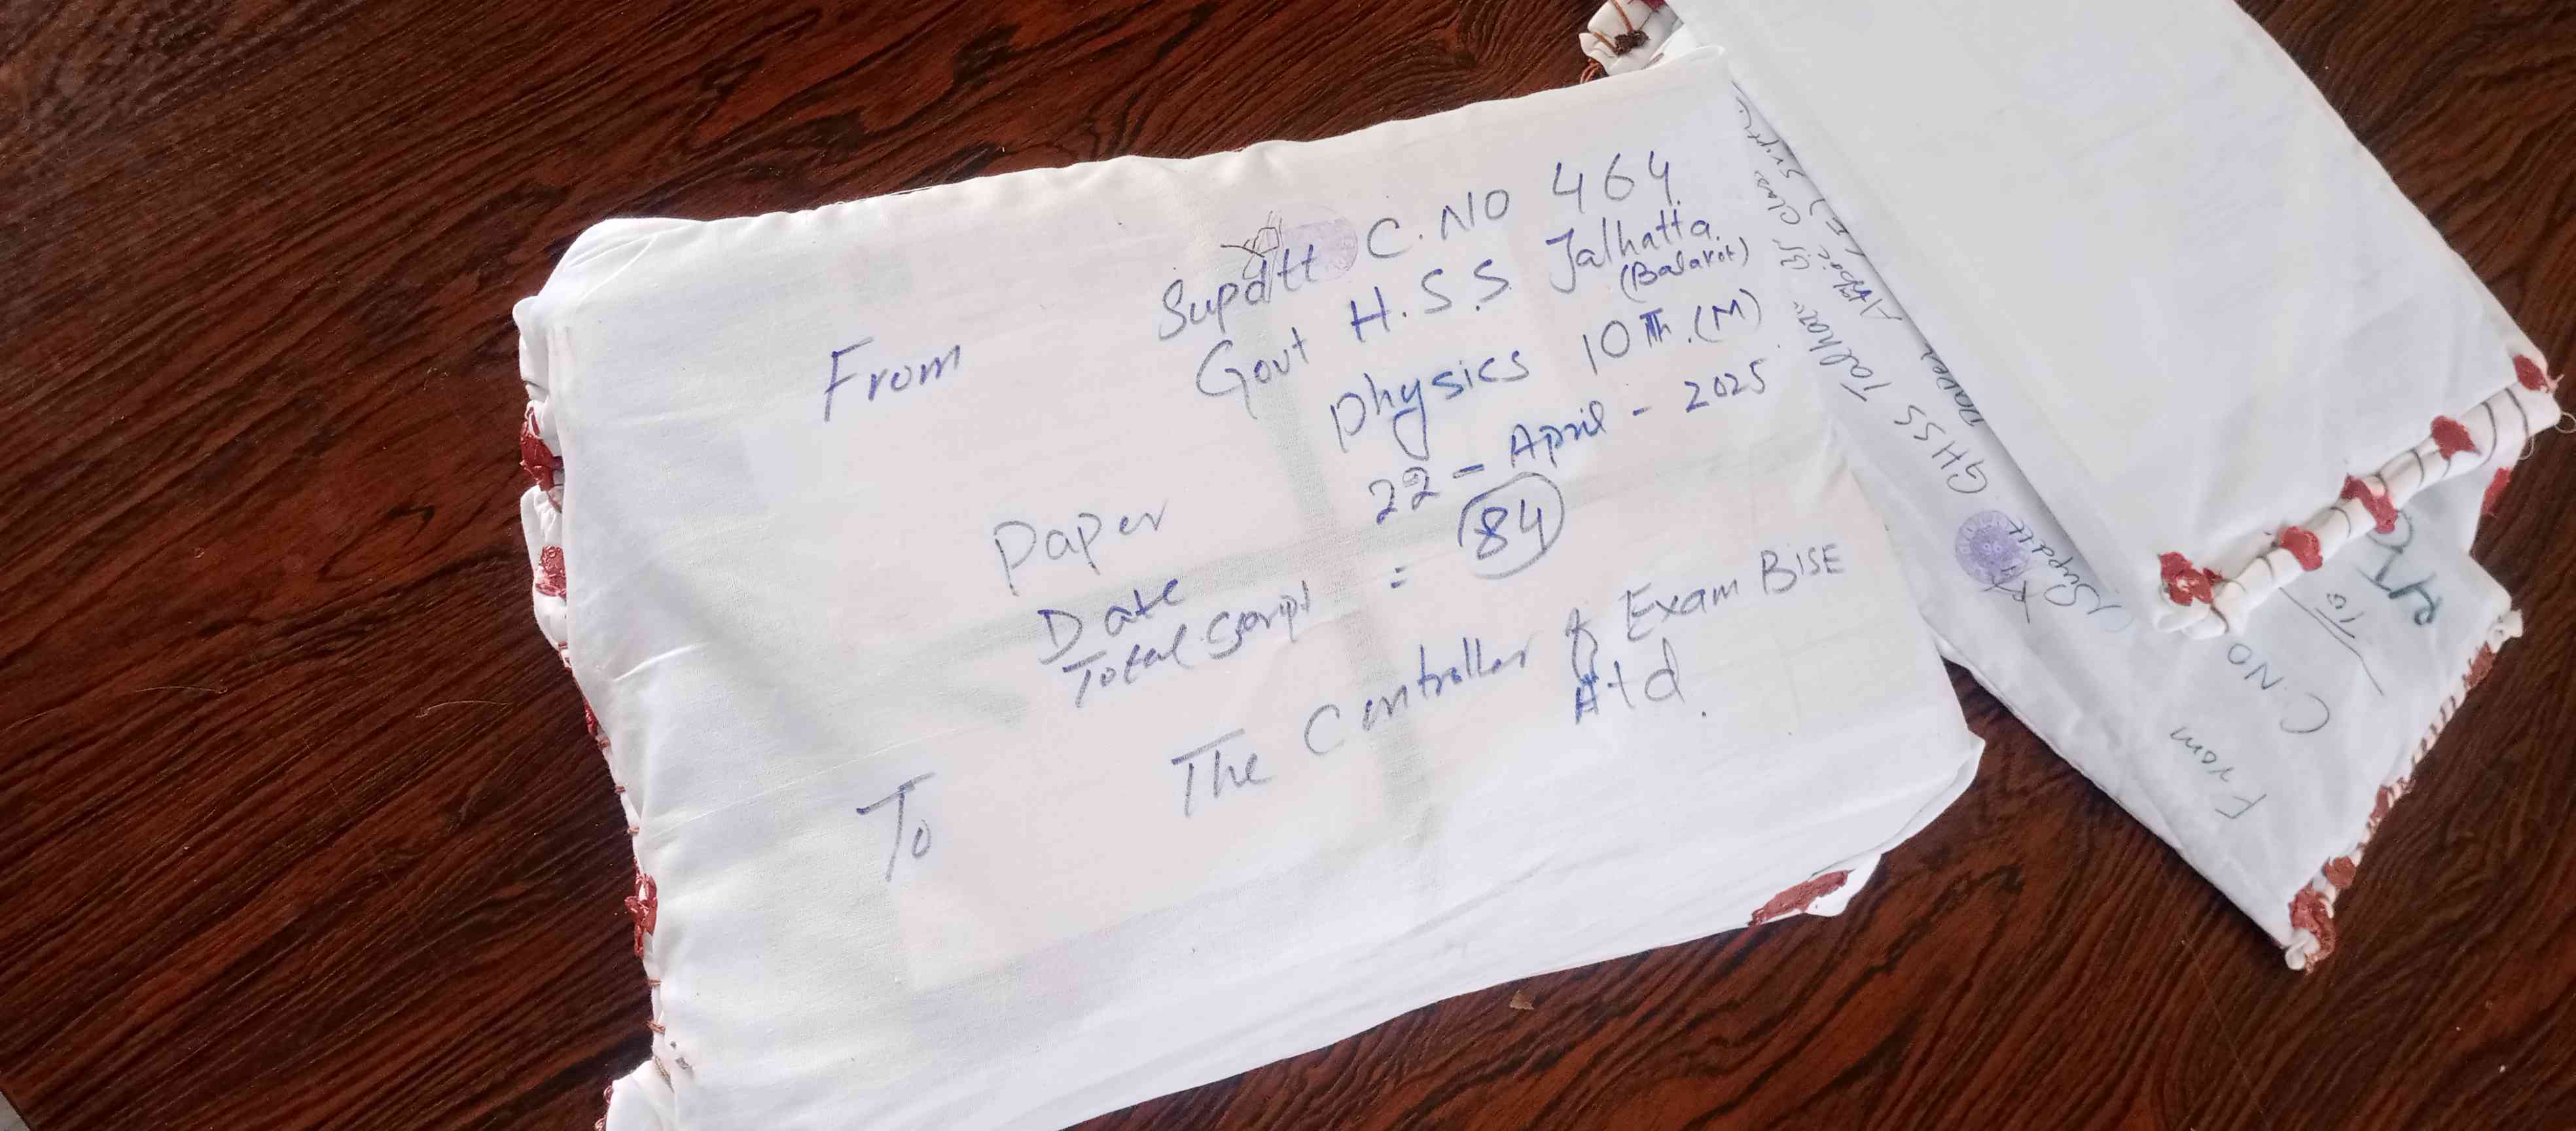 From
Supdtt C.NO 464
Govt H.S.S Jalhatta
(Balakot)
Paper Physics 10Th.(M)
Date 22 - April - 2025
Total Script = 84
To
The Controller of Exam BISE
Atd.
Supdtt
GHSS Talhatta
Paper
From
C.NO
To